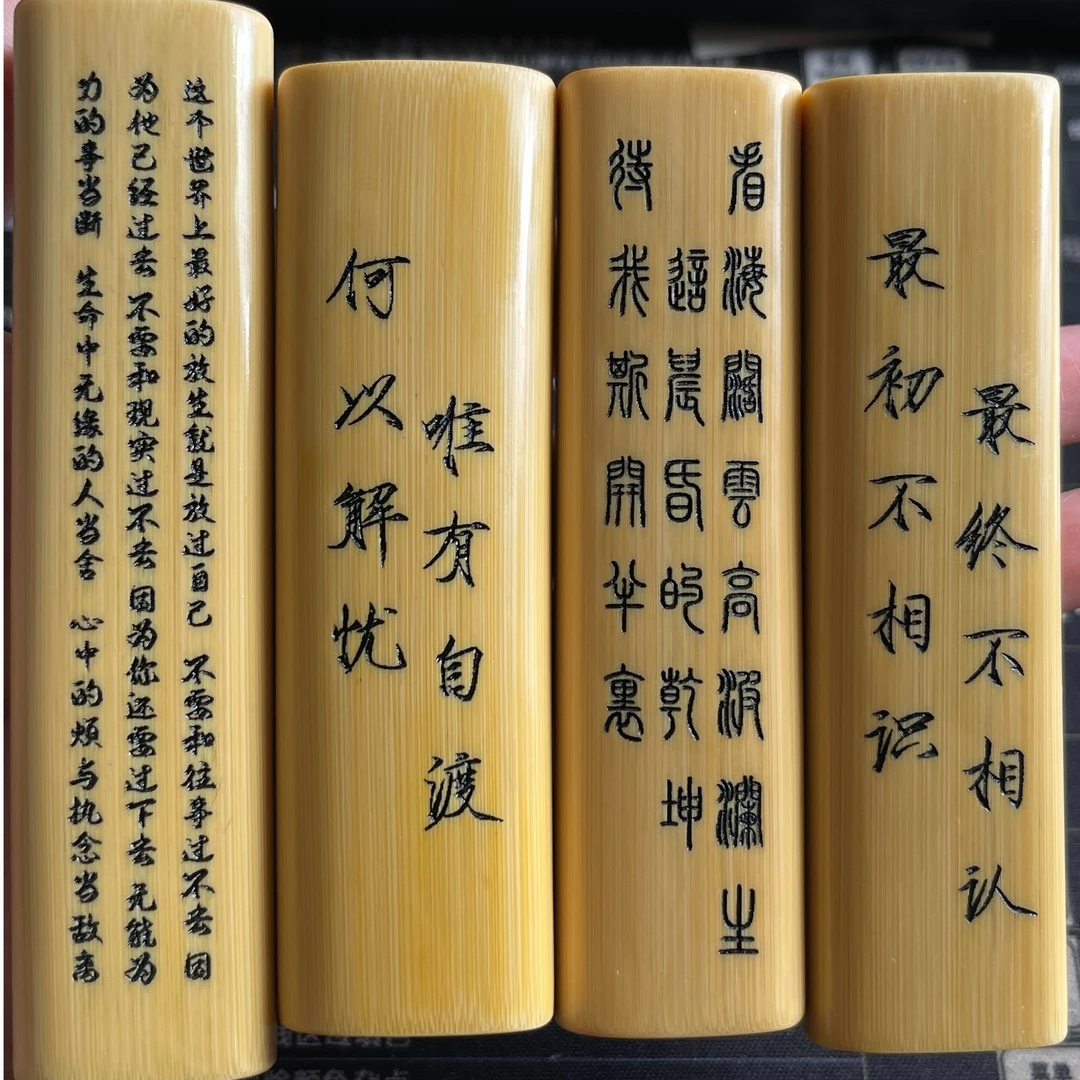 这个世界上最好的放生就是放过自己 不要和往事过不去 因
为他已经过去 不要和现实过不去 因为你还要过下去 无能为
力的事当断 生命中无缘的人当舍 心中的烦与执念当敌离
何以解忧
唯有自渡
看海闊雲高波瀾生
這晨昏的乾坤
待我斯開半裏
最初不相识
最终不相认